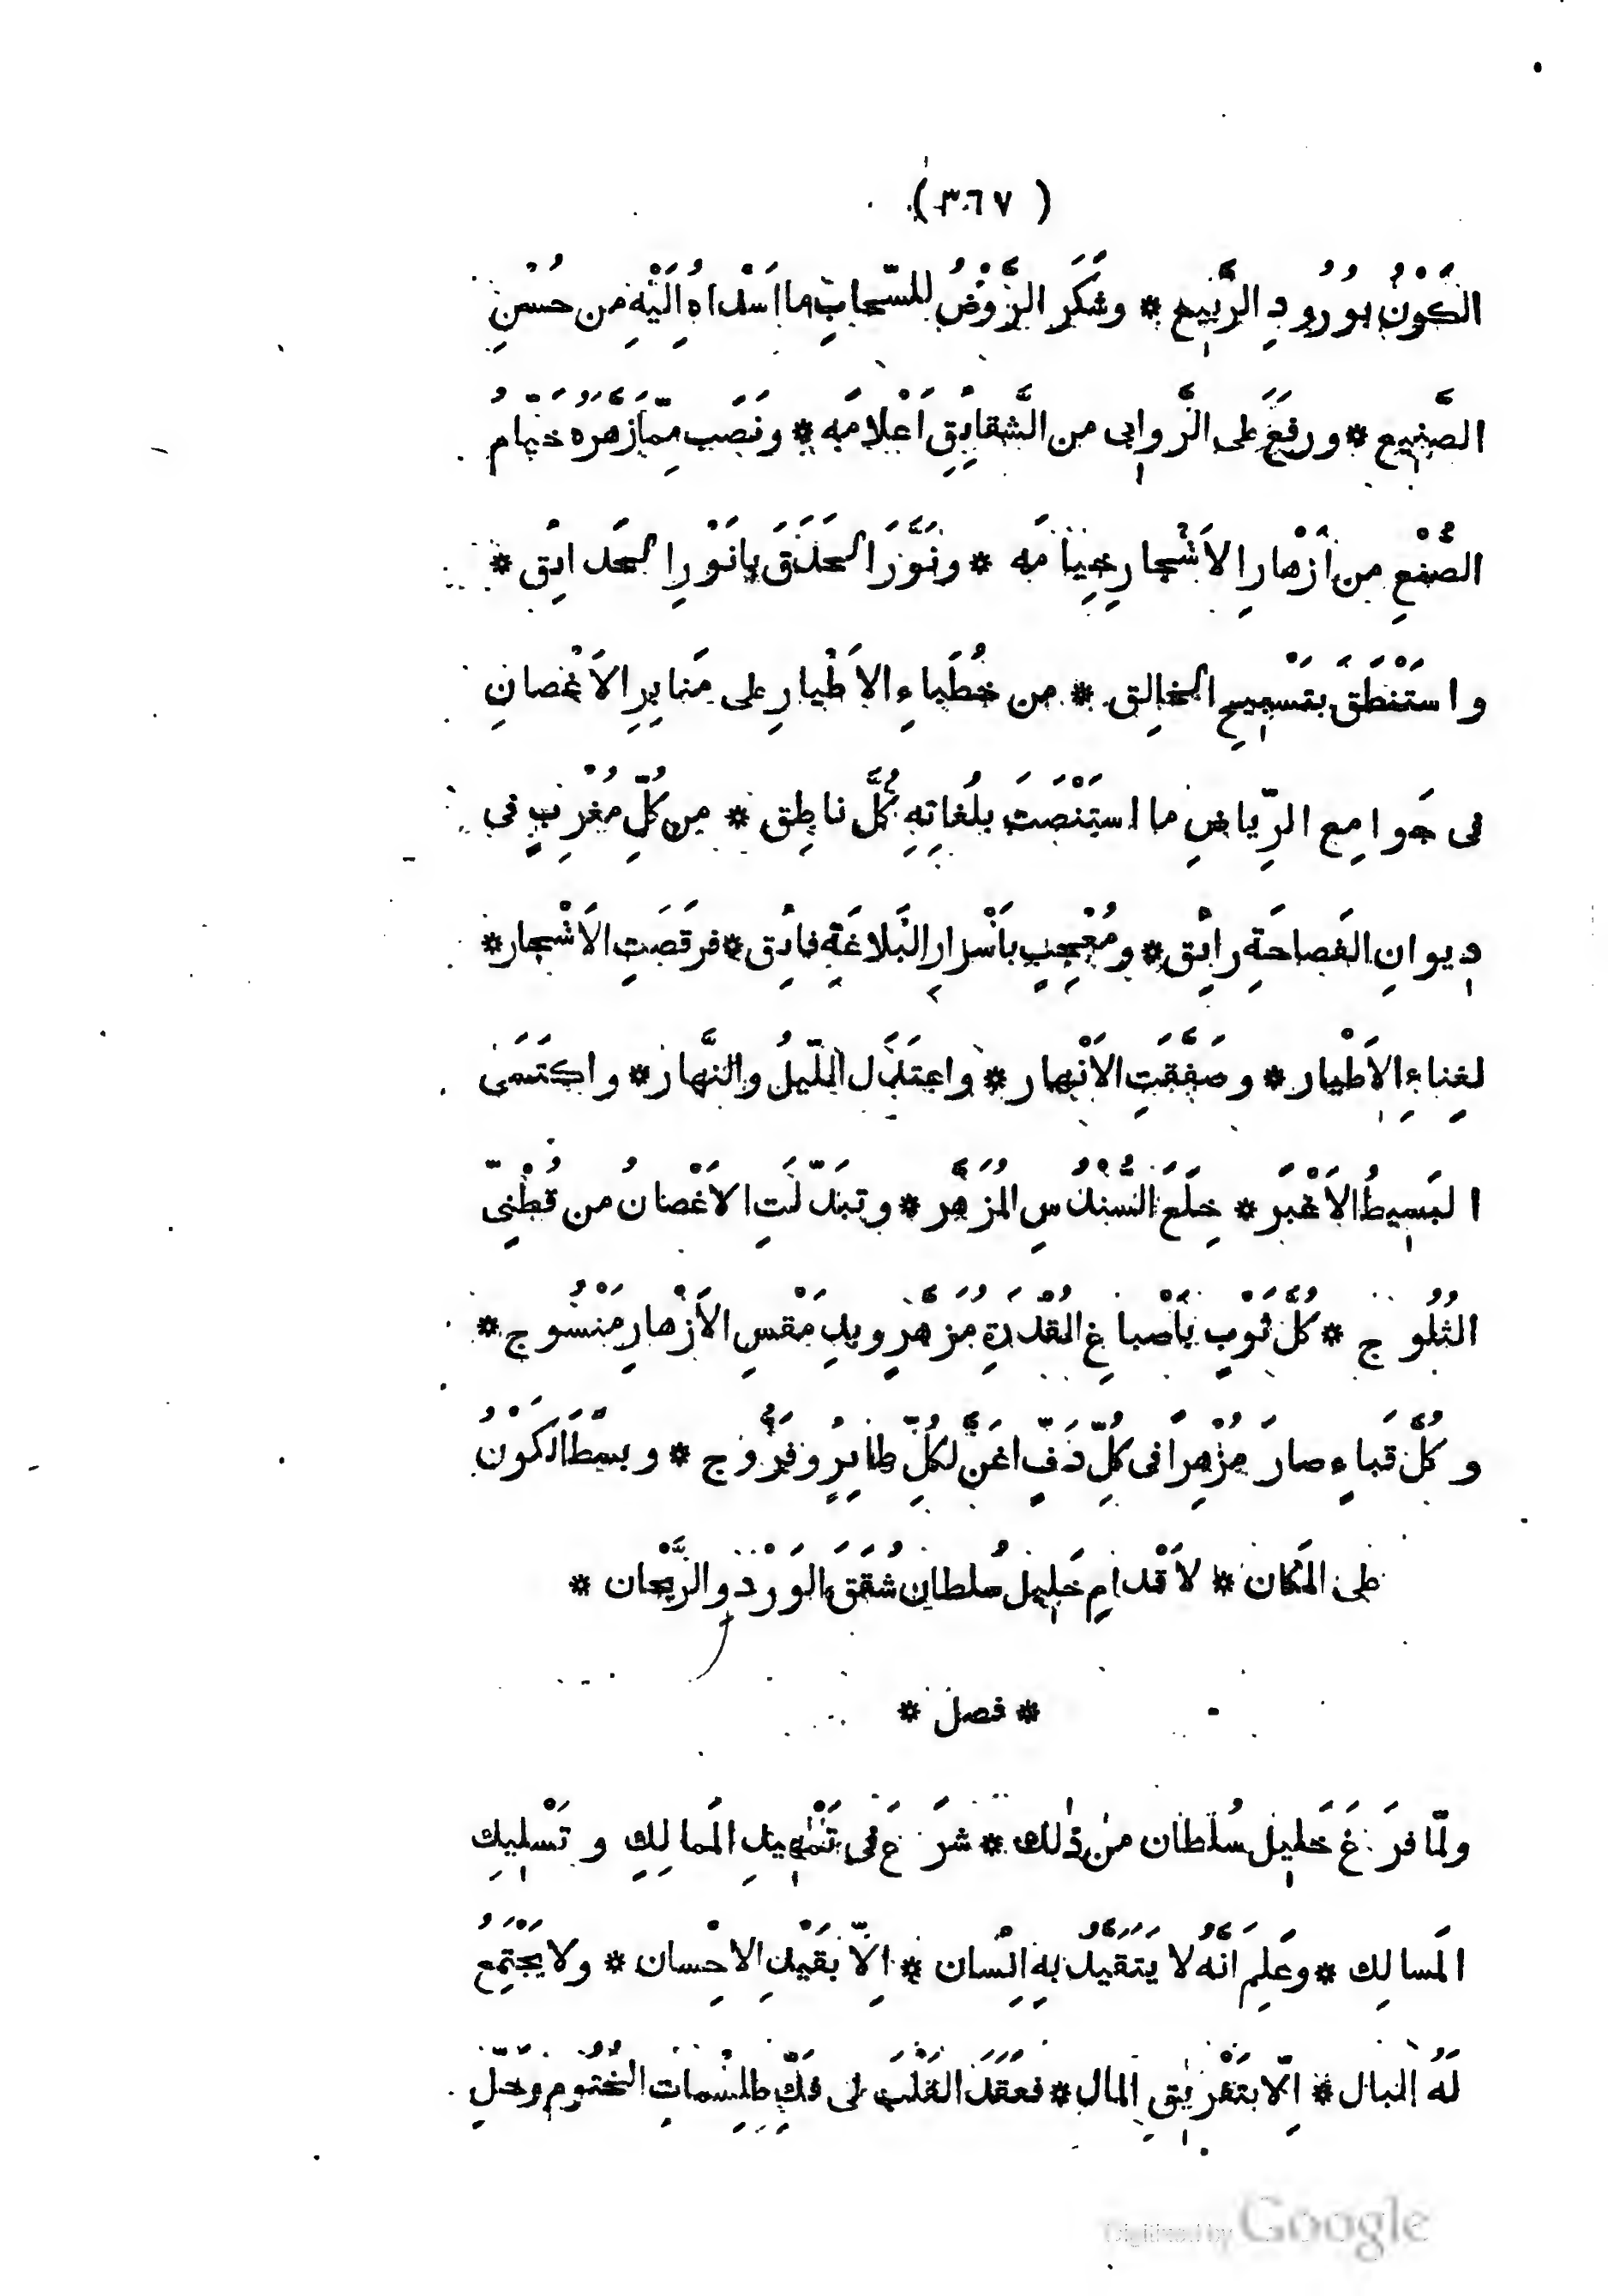 (٣٦٧)
الكَوْنُ بوُرُودِ الرَّبِيعِ * وشَكَرَ الرَّوْضُ للسّحابِ ما اَسْداهُ اِلَيْهِ من حُسْنِ
الصَّنِيعِ * ورفَعَ على الرَّوابِى من الشَّقايِقِ اَعْلامَه * ونَصَب مِمّا زَهره خيّام
الصُّنْعِ من اَزْهارِ الاَشْجارِ خِيامَه * ونَوَّرَ الحَدَقَ بِاَنْوَرِ الحَدائِق *
واستَنْطَقَ بتَسْبِيحِ الخالِق * من خُطَباءِ الاَطْيارِ على مَنابِرِ الاَغْصانِ
فى جَوامِع الرِّياضِ ما استَنْصَتَ بلُغاتِهِ كُلَّ ناطِق * من كُلِّ مُغْرِبٍ فى
دِيوانِ الفَصاحَةِ رائِق * ومُعْجِبٍ بأَسْرارِ البَلاغَةِ فائِق * فرقَصَتِ الاَشْجار *
لغِناءِ الاَطْيار * وصَفَّقَتِ الاَنْهار * واعتَدَل اللّيلُ والنَّهار * واكتَسَى
البَسِيطُ الاَغْبَر * خِلَعَ السُّنْدُسِ المُزَهَّر * وتبَدّلَتِ الاَغْصانُ من قُطْنِىّ
الثُلُوج * كُلَّ ثَوْبٍ بأَصْباغِ القُدْرَةِ مُزَهَّرٍ وبدِمَقْسِ الاَزْهارِ مَنْسُوج *
وكُلُّ قباءٍ صارَ مُزْهِرًا فى كُلِّ دَفٍّ اغَنَّ لكُلِّ طايِرٍ وفَرُّوج * وبسَطَ الكَوْنُ
على المَكان * لاَقْدامِ خَلِيل سُلطان شُقَقَ الوَرْدِ والرَّيْحان *
* فصل *
ولمّا فرَغَ خَلِيل سُلطان من ذٰلك * شرَعَ فى تَمْهِيدِ المَمالِكِ وتَسْلِيكِ
المَسالِك * وعَلِمَ انّهُ لا يتَقَيَّدُ بِهِ اِنْسان * اِلّا بقَيْدِ الاِحْسان * ولا يَجْتَمِعُ
لَهُ البال * اِلّا بتَفْرِيقِ المال * فعقَدَ القَلْبَ على فَكِّ طِلِسْماتِ الخُتُومِ وحَلِّ
Digitized by Google